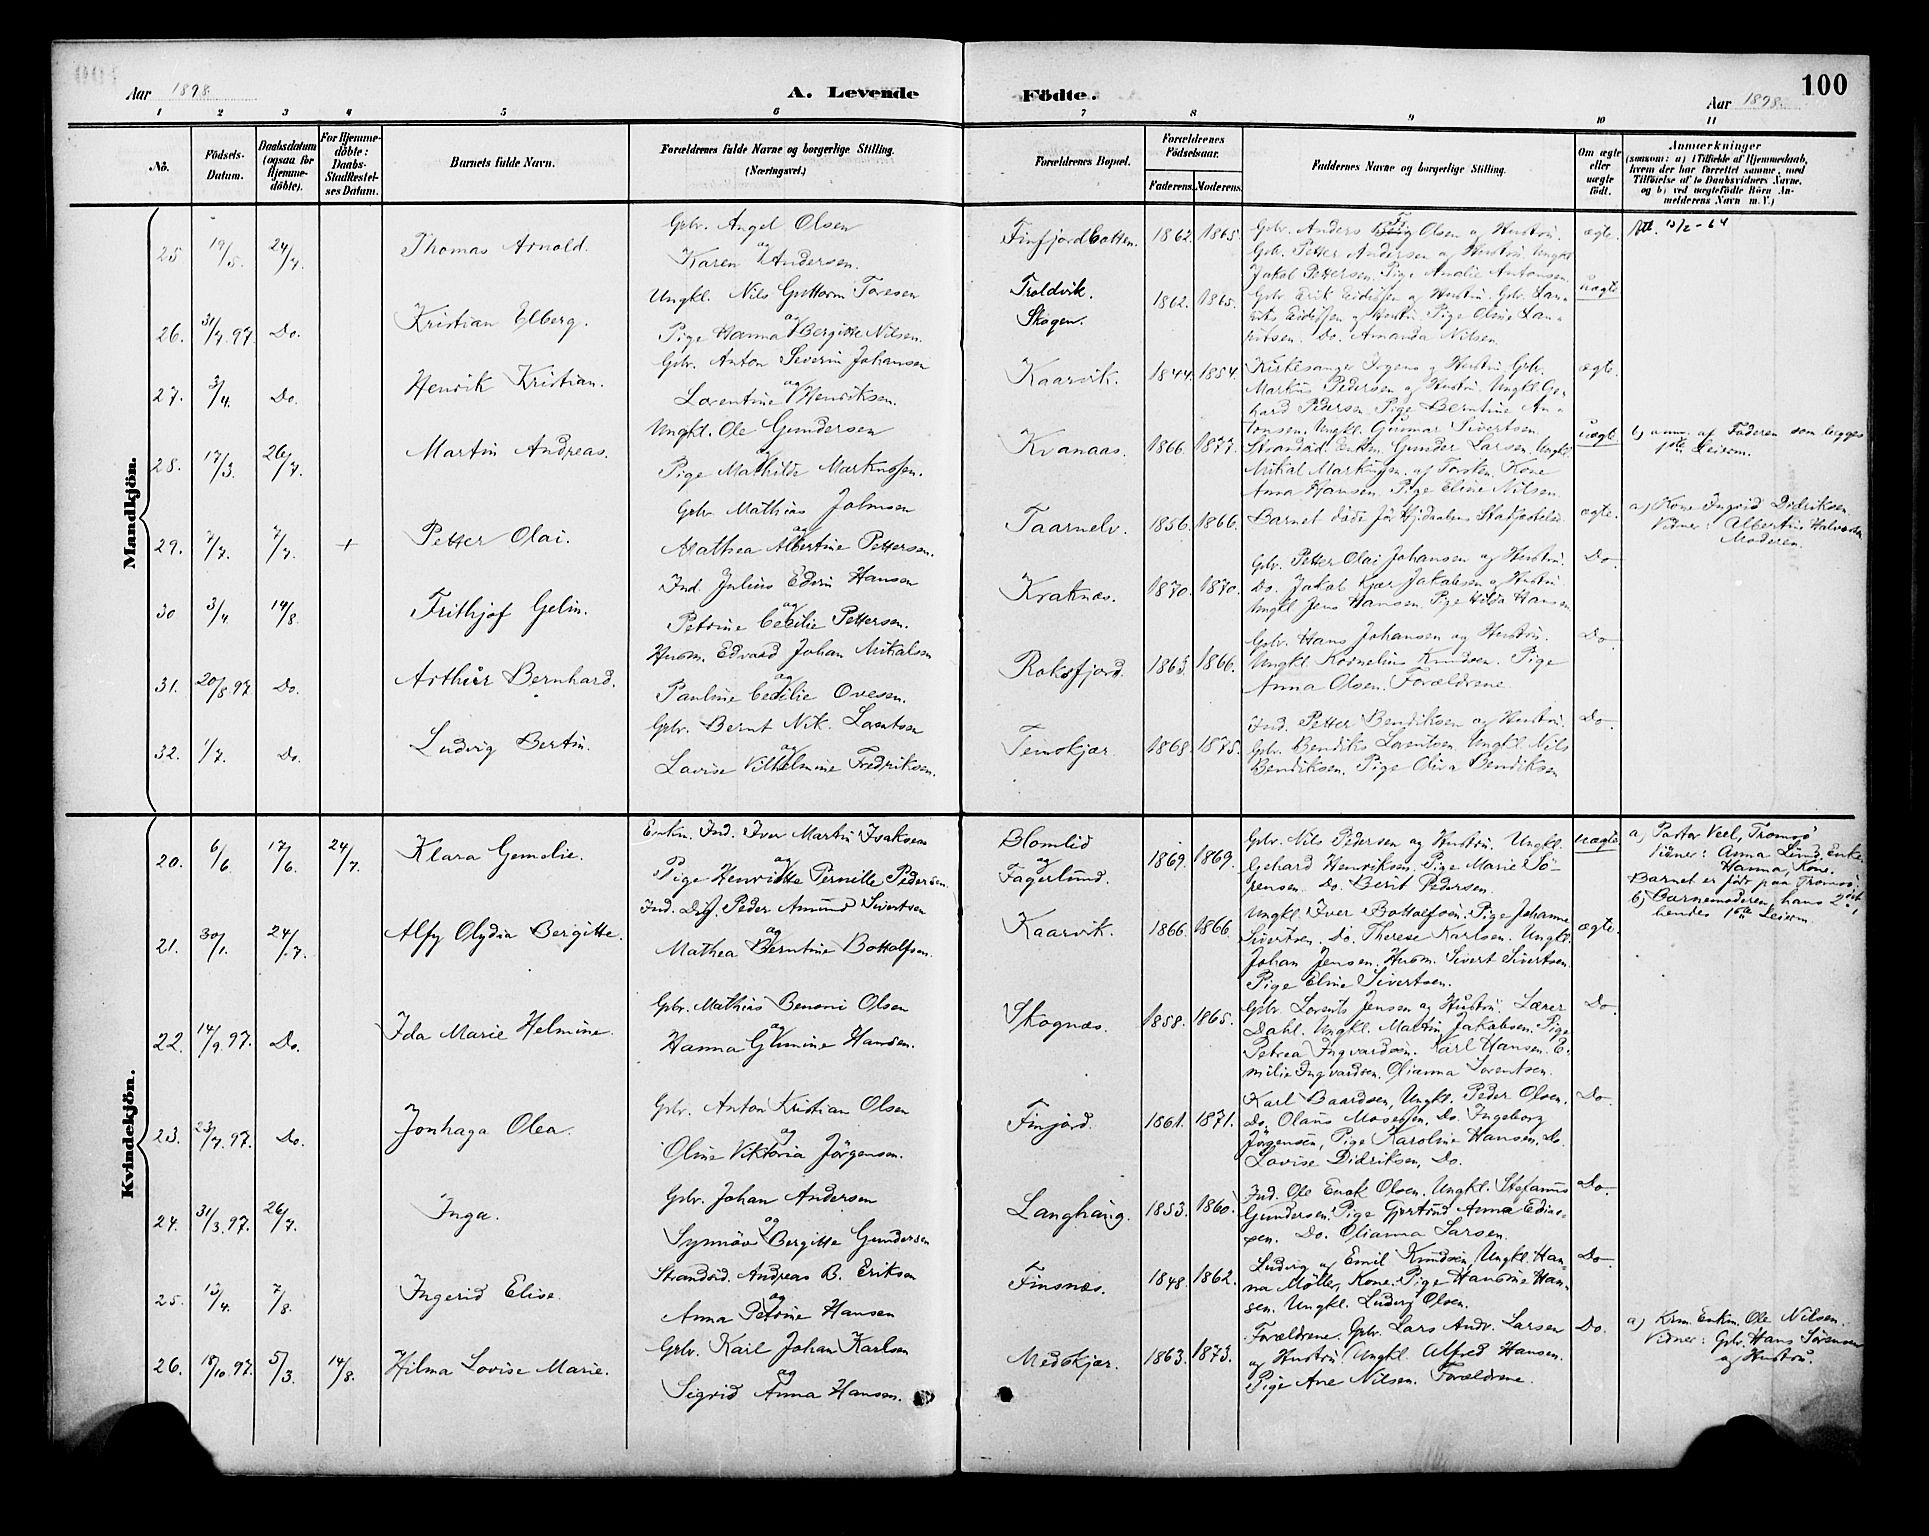 100
Aar 1898.
A. Levende
Födte.
Aar 1898.
1 2 3 4 5 6 7 8 9 10 11
No.
Födsels-
Datum.
Daabsdatum
(ogsaa for
Hjemme-
döbte).
For Hjemme-
döbte:
Daabs-
Stadfæstel-
ses Datum.
Barnets fulde Navn.
Forældrenes fulde Navne og borgerlige Stilling.
(Næringsvei.)
Forældrenes Bopæl.
Forældrenes
Födselsaar.
Faderens. Moderens.
Faddernes Navne og borgerlige Stilling.
Om ægte
eller
uægte
födt.
Anmærkninger
(saasom: a) i Tilfælde af Hjemmedaab,
hvem der har forrettet samme, med
Tilföielse af to Daabsvidners Navne,
og b) ved uægtefödte Börn An-
melderens Navn m. V.)
Mandkjön.
25. 19/5. 24/7. Thomas Arnold.
Gbr. Angel Olsen
og
Karen Andersen.
Finfjordbotten. 1862. 1865.
Gbr. Anders Olsen og Hustru.
Gbr. Petter Andersen og Hustru. Ungkl.
Jakob Pettersen. Pige Amalie Antonsen.
ægte.
Att. 13/2-64
26. 31/7.97. Do. Kristian Elberg.
Ungkl. Nils Guttorm Toresen
og
Pige Hanna Bergitte Nilsen.
Troldvik.
Skogen.
1862. 1865.
Gbr. Erik Eidissen og Hustru. Gbr. Lau-
rits Eidissen og Hustru. Pige Oline Lau-
ritsen. Do. Amanda Nilsen.
uægte
27. 3/4. Do. Henrik Kristian.
Gbr. Anton Severin Johansen
og
Lorentine Henriksen.
Kaarvik. 1844. 1854.
Kirkesanger Irgens og Hustru. Gbr.
Markus Pedersen og Hustru. Ungkl. Ge-
hard Pedersen. Pige Berntine An-
tonsen. Ungkl. Gunnar Sivertsen.
ægte.
28. 17/3. 26/7. Martin Andreas.
Ungkl. Ole Gundersen
og
Pige Mathilde Markussen.
Kvanaas. 1866. 1877.
Strandsid. Enkm. Gunder Larsen. Ungkl.
Mikal Markussen. af Torsken. Kone
Anna Hansen. Pige Eline Nilsen.
uægte
b) anm. af Faderen som begges
1ste Leierm.
29. 7/7. 7/7. + Petter Olai.
Gbr. Mathias Johnsen
og
Mathea Albertine Pettersen.
Taarnelv. 1856. 1866.
Barnet döde för Hjdaabens Stadfæstelse.
ægte.
a) Kone Ingrid Didriksen.
Vidner: Albertin Halvorsen
Moderen.
30 3/4. 14/8. Frithjof Gelin.
Ind. Julius Edvin Hansen
og
Petrine Cecilie Pettersen.
Kraknæs. 1870. 1870.
Gbr. Petter Olai Johansen og Hustru.
Do. Jakob Kjær Jakobsen og Hustru.
Ungkl. Jens Hansen. Pige Hilda Hansen.
Do.
31. 20/8.97. Do. Arthur Bernhard.
Husm. Edvard Johan Mikalsen
og
Pauline Cecilie Ovesen.
Roksfjord. 1863. 1866.
Gbr. Hans Johansen og Hustru.
Ungkl. Kornelius Knudsen. Pige
Anna Olsen. Forældrene.
Do
32. 1/7. Do. Ludvig Bertin.
Gbr. Bernt Nik. Lorentsen
og
Lovise Vilhelmine Fredriksen.
Temskjær. 1868. 1875.
Ind. Petter Bendiksen og Hustru.
Gbr. Bendiks Lorentsen. Ungkl. Nils
Bendiksen. Pige Oliva Bendiksen
Do.
Kvindekjön.
20. 6/6. 17/6. 24/7. Klara Gemalie.
Enkm. Ind. Iver Martin Isaksen
og
Pige Henriette Pernille Pedersen.
Blomlid
og
Fagerlund.
1869. 1869.
Gbr. Nils Pedersen og Hustru. Ungkl.
Gehard Henriksen. Pige Marie Sö-
rensen. Do. Berit Pedersen.
uægte
a) Pastor Veel, Tromsö
Vidner: Anna Lund, Enke.
Hanna, Kone.
Barnet er född paa Tromsö.
b) Barnemoderen, hans 2det
hendes 1ste Leierm.
21. 30/1. 24/7. Alfy Olydia Bergitte.
Ind. Disf. Peder Amund Sivertsen
og
Mathea Berntine Bottolfsen.
Kaarvik. 1866. 1866.
Ungkl. Iver Bottolfsen. Pige Johanne
Sivertsen. Do. Therese Karlsen. Ungkl.
Johan Jensen. Husm. Sivert Sivertsen.
Pige Eline Sivertsen.
ægte.
22. 14/9.97. Do. Ida Marie Helmine.
Gbr. Mathias Benoni Olsen
og
Hanna Hansen.
Skognæs. 1858. 1865.
Gbr. Lorents Jensen og Hustru. Lærer
Dahl. Ungkl. Martin Jakobsen. Pige
Petrea Ingvardsen. Karl Hansen. E-
milie Ingvardsen. Olianna Lorentsen.
Do.
23. 23/7.97. Do. Jonhaga Olea.
Gbr. Anton Kristian Olsen
og
Oline Viktoria Jörgensen.
Finjord. 1861. 1871.
Karl Baardsen, Ungkl. Peder Olsen.
Do. Olaus Mosessen. Do. Ingeborg
Jörgensen, Pige Karoline Hansen, Do.
Lovise Didriksen, Do.
Do.
24. 31/3.97. 26/7. Inga.
Gbr. Johan Andersen
og
Synnöv Bergitte Gundersen
Langhaug. 1853. 1860.
Ind. Ole Enok Olsen. Ungkl. Stefanus
Gundersen. Pige Gjertrud Anna Edias-
sen. Do. Olianna Larsen.
Do.
25. 13/4. 7/8. Ingerid Elise.
Strandsid. Andreas B. Eriksen
og
Anna Petrine Hansen
Finsnæs. 1848. 1862.
Ludvig og Emil Knudsen, Ungkl. Han-
na Möller, Kone. Pige Hansine Han-
sen. Ungkl. Ludvig Olsen.
Do.
26. 18/10.97. 5/3. 14/8. Hilma Lovise Marie.
Gbr. Karl Johan Karlsen
og
Sigrid Anna Hansen.
Medskjær. 1863. 1873.
Forældrene. Gbr. Lars Andr. Larsen
og Hustru. Ungkl. Alfred Hansen.
Pige Ane Nilsen. Forældrene.
Do.
a) Krm. Enkm. Ole Nilsen.
Vidner: Gbr. Hans Sörensen
og Hustru.